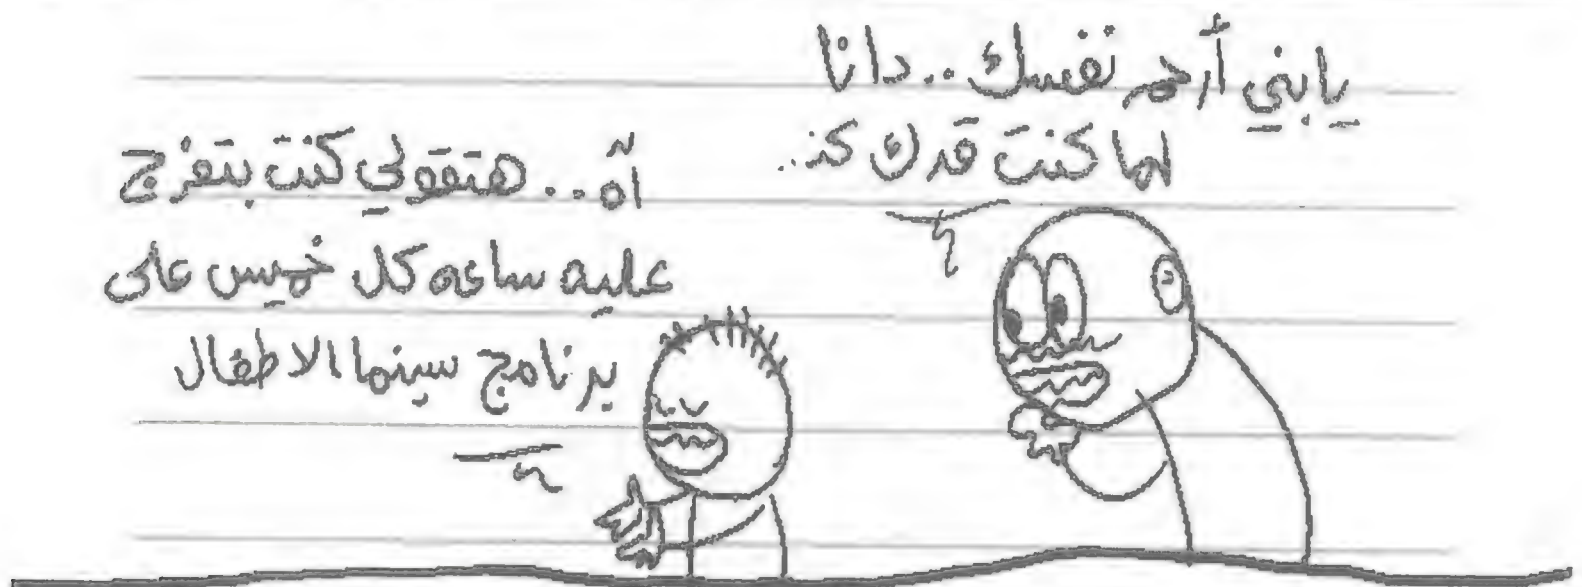 يابني أرحم نفسك..دانا
لما كنت قدك كنـ..
آه.. هتقولي كنت بتفرج
عليه ساعه كل خميس على
برنامج سينما الاطفال